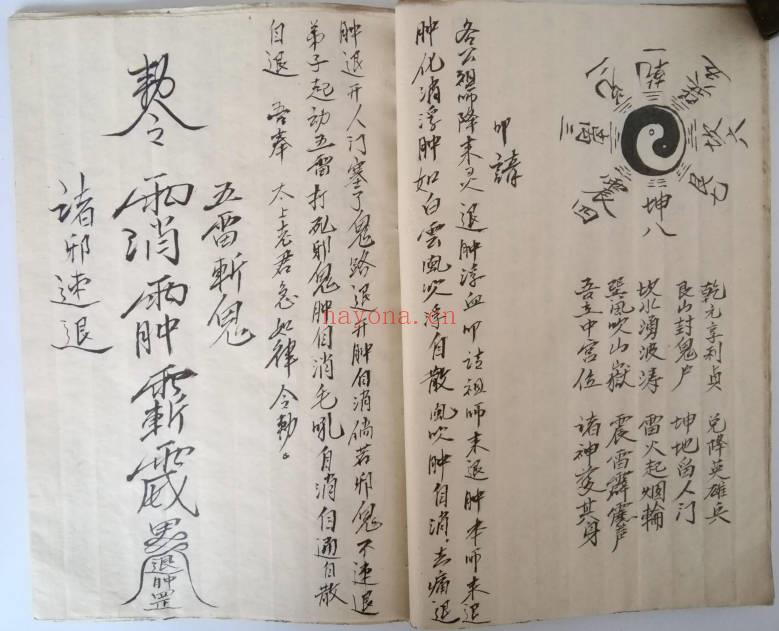 一乾
兑二
三离
震四
巽五
坎六
艮七
坤八
乾元亨利贞 兑降英雄兵
艮山封鬼户 坤地留人门
坎水湧波涛 雷火起烟輪
巽風吹山嶽 震雷霹靂声
吾立中宫位 諸神護其身
叩請
各公祖師降来灵 退肿浮血叩請祖师来退肿本师来退
肿化消浮肿如白雲風吹浮自散風吹肿自消，去痛退
肿退开人门塞了鬼路退开肿自消倘若邪鬼不速退
弟子起动五雷打死邪鬼肿自消毛吼自消自通自散
自退 吾奉 太上老君急如律令勅。
五雷斬鬼
勅令
諸邪速退
退肿罡
hayona.cn